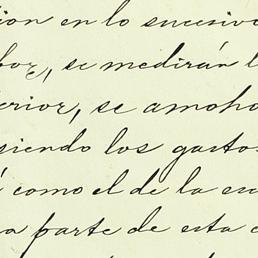 ion en lo sucesivo
bor, se medirán l
erior, se amoho
siendo los gastos
i como el de la esc
a parte de esta c